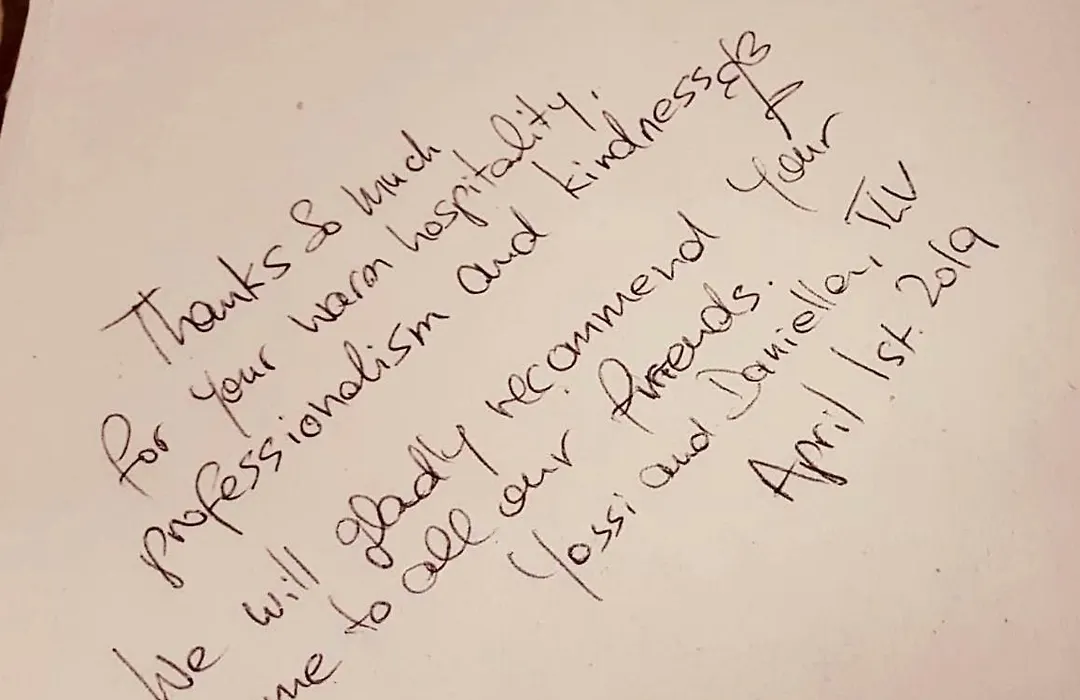 Thanks so much
for your warm hospitality,
professionalism and kindness
We will gladly recommend your
me to all our friends.
Yossi and Daniella, TLV
April 1st. 2019